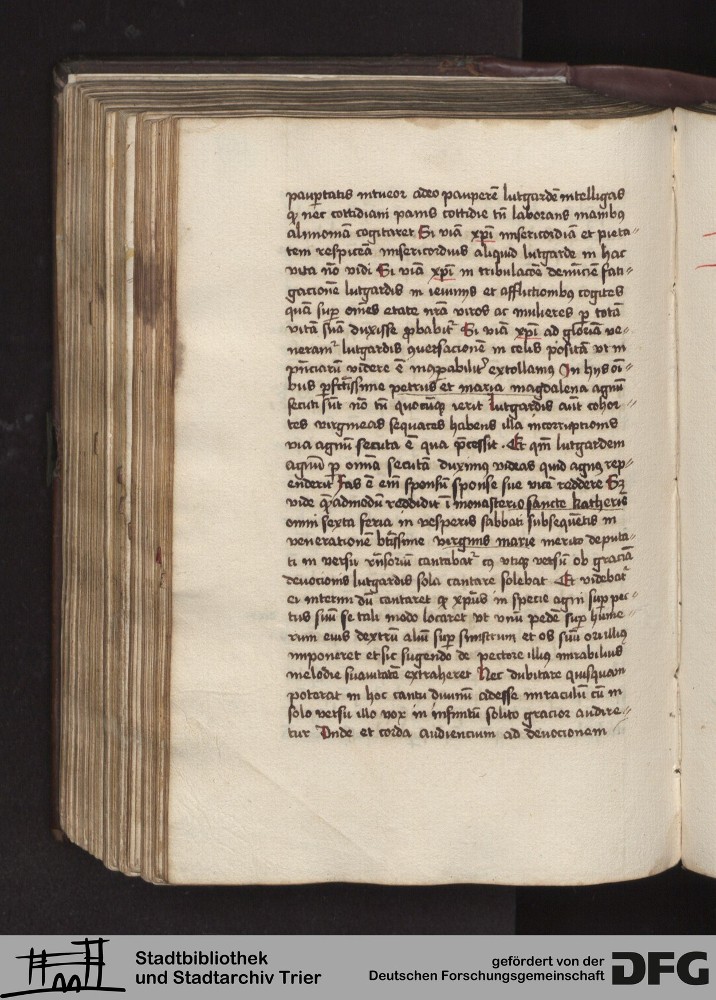 paup̄tatis intueor adeo pauperē lutgardē intelligas
ꝙ nec cottidiani panis cottidie tn̄ laborans manibꝯ
alimoniam cogitaret Si viā xp̄i misericordiā et pieta⸗
tem respiceā misericordius aliquid lutgarde in hac
vita nō vidi Si viā xp̄i in tribulacōe
gacionē lutgardis in ieiuniis et afflictionibꝯ cogites
quā suꝑ om̄es etate nr̄a viros ac mulieres ꝑ totā
vitā suā duxisse ꝓbabit᷑ Si viā xp̄i ad gloriā ve⸗
neram᷑ lutgardis ꝯuersacionē in celis positā vt in
videre ē extollamus In hys om̄i
bus petrus et maria magdalena agnū
secuti sūt nō tn̄ quocūqꝫ ierit Lutgardis aūt cohor⸗
tes virgineas sequaces habens illa incorruptionis
via agnū secuta ē qua p̄cessit . Et qm̄ lutgardem
agnū ꝑ omīa secutā duximꝯ videas quid agnꝯ rep⸗
enderit Fas ē em̄ sponsū sponse sue viā reddere Sꝫ
vide reddidit ī monasterio sancte katherīe
omni sexta feria in vesperis sabbati subsequētis in
venerationē btīssime virginis marie merito deputa⸗
ti in versu rn̄soriū cantabat᷑ versū ob graciā
deuocionis lutgardis sola cantare solebat Et videbat᷑
ei interim dū cantaret ꝙ xp̄us in specie agni suꝑ pec⸗
tus suū se tali modo locaret vt vnū pedē suꝑ hume⸗
rum eius dextrū aliū suꝑ sinistrum et os suū ori illiꝯ
imponeret et sic sugendo de pectore illiꝯ mirabilius
melodie suauitatē extraheret Nec dubitare quisquam
poterat in hoc cantu diuinū adesse miraculū cū in
solo versu illo vox in infinitū solito gracior audire⸗
tur Vnde et corda audiencium ad deuocionem
Stadtbibliothek
und Stadtarchiv Trier
gefördert von der
Deutschen Forschungsgemeinschaft DFG